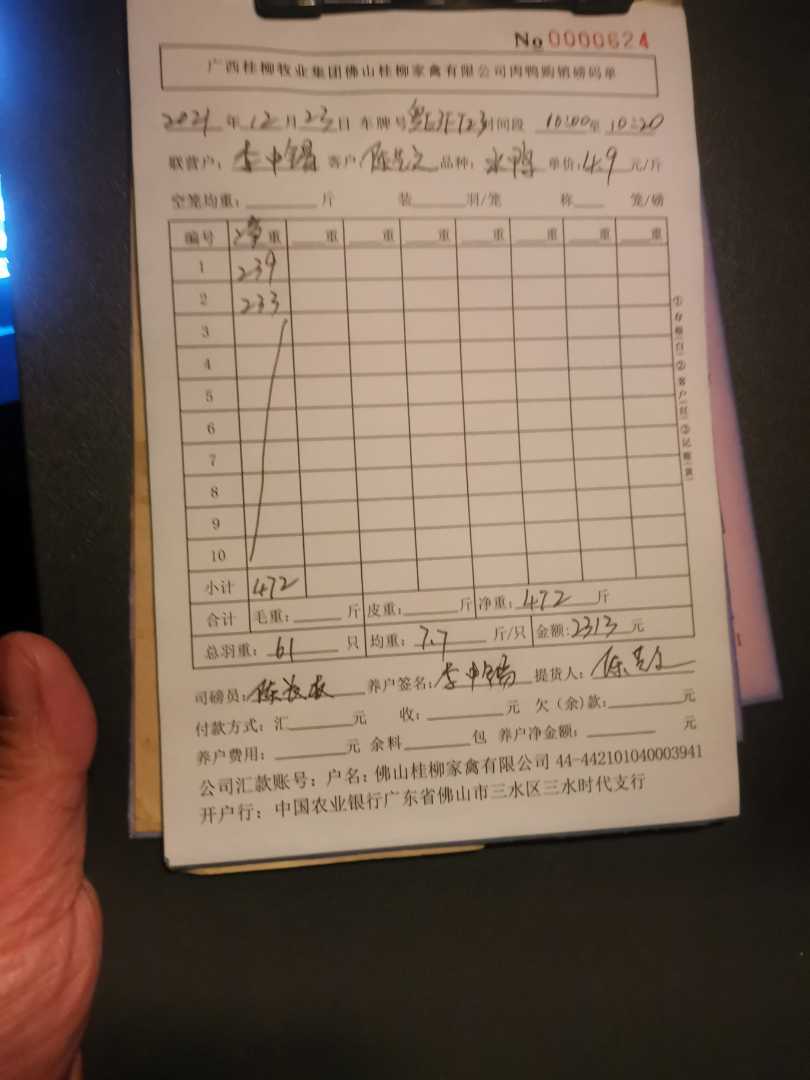 No 0000624
广西桂柳牧业集团佛山桂柳家禽有限公司肉鸭购销磅码单
2021年12月23日 车牌号 时间段 10:00至10:20
联营户:李中锡 客户: 品种:水鸭 单价:4.9元/斤
空笼均重:____斤 装____羽/笼 称____笼/磅
编号 净重 __重 __重 __重 __重 __重 __重 __重
1 239
2 233
3
4
5
6
7
8
9
10
小计 472
合计 毛重:____斤 皮重:____斤 净重:472斤
总羽重:61只 均重:7.7斤/只 金额:2313元
司磅员: 养户签名:李中锡 提货人:
付款方式:汇____元 收:____元 欠(余)款:____元
养户费用:____元 余料____包 养户净金额:____元
公司汇款账号:户名:佛山桂柳家禽有限公司 44-442101040003941
开户行:中国农业银行广东省佛山市三水区三水时代支行
①存根(白)②客户(红)③记账(黄)